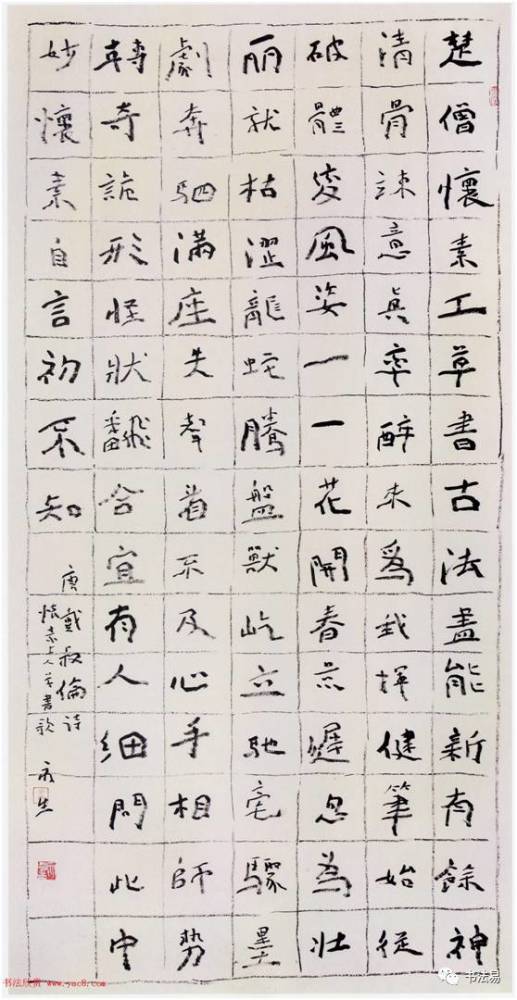 楚僧懷素工草書古法盡能新有餘神
清骨竦意真率醉來爲我揮健筆始從
破體變風姿一一花開春景遲忽為壯
丽就枯澀龍蛇騰盤獸屹立馳毫驟墨
劇奔駟滿座失聲看不及心手相師勢
轉奇詭形怪狀飜合宜有人細問此中
妙懷素自言初不知
唐戴叔倫詩
懷素上人草書歌
书法欣赏 www.yac8.com
书法易